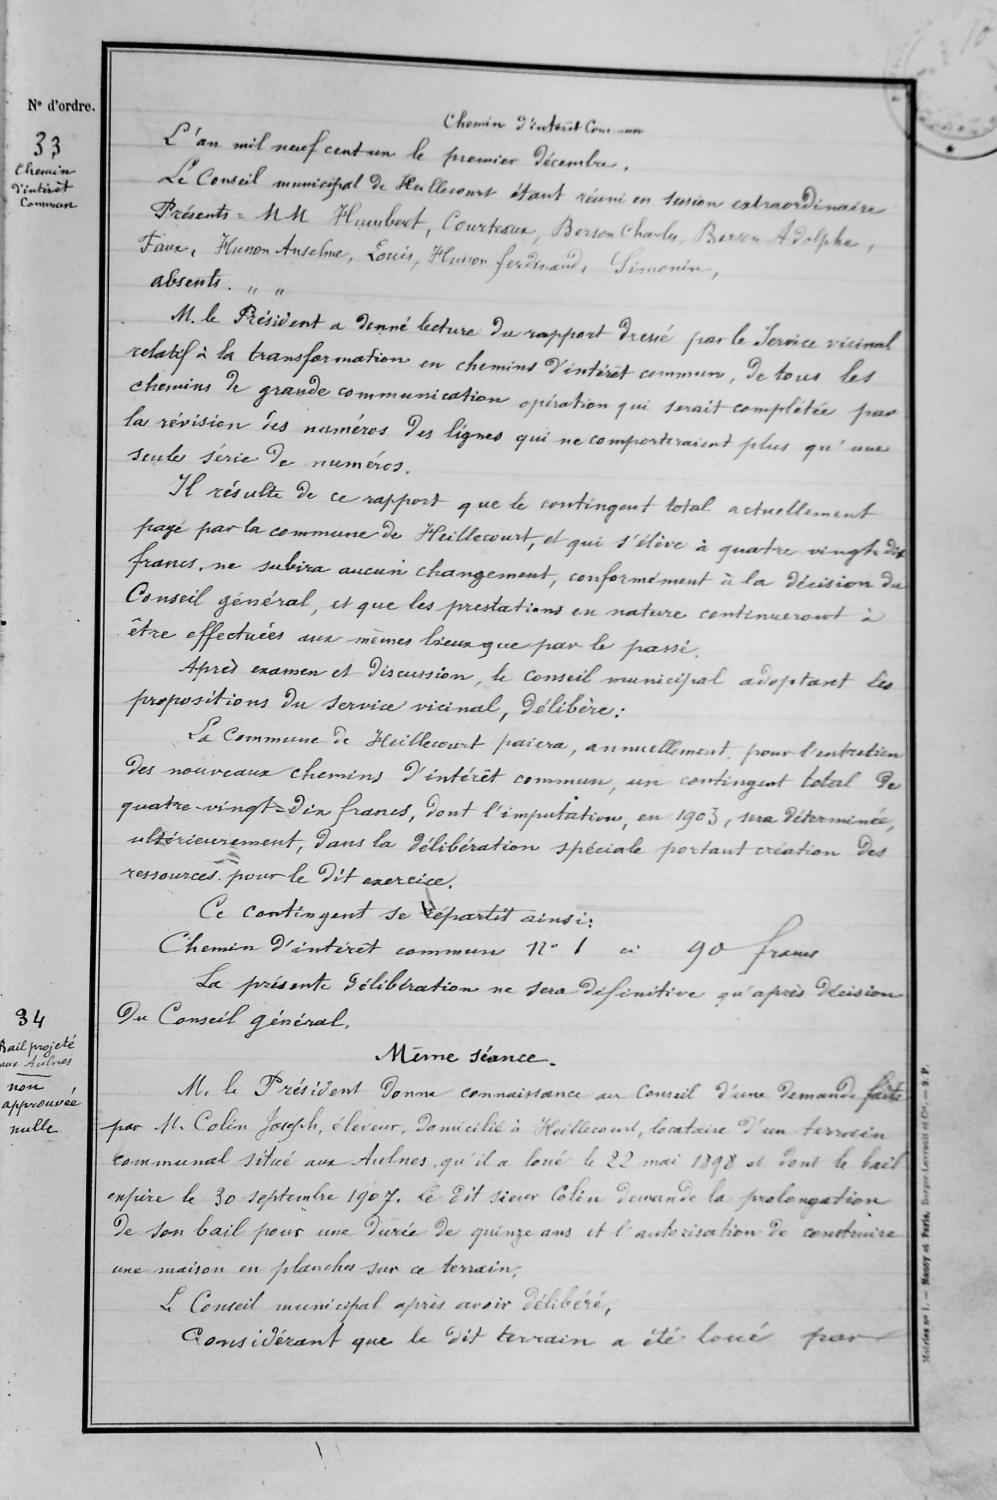 10
N° d'ordre.
Chemin d'intérêt Commun
33
Chemin
d'intérêt
Commun
L'an mil neuf cent un le premier décembre.
Le Conseil municipal de Heillecourt étant réuni en session extraordinaire
Présents = MM Humbert, Courteaux, Berson Charles, Berson Adolphe,
Faux, Husson Anselme, Louis, Husson ferdinand, Simonin,
absents. " "
M. le Président a donné lecture du rapport dressé par le Service vicinal
relatif à la transformation en chemins d'intérêt commun, de tous les
chemins de grande communication opération qui serait complétée par
la révision des numéros des lignes qui ne comporteraient plus qu'une
seule série de numéros.
Il résulte de ce rapport que le contingent total actuellement
payé par la commune de Heillecourt, et qui s'élève à quatre vingt dix
francs, ne subira aucun changement, conformément à la décision du
Conseil général, et que les prestations en nature continueront à
être effectuées aux mêmes lieux que par le passé.
Après examen et discussion, le conseil municipal adoptant les
propositions du service vicinal, délibère:
La Commune de Heillecourt paiera, annuellement, pour l'entretien
des nouveaux chemins d'intérêt commun, un contingent total de
quatre-vingt-dix francs, dont l'imputation, en 1903, sera déterminée,
ultérieurement, dans la délibération spéciale portant création des
ressources pour le dit exercice.
Ce contingent se répartit ainsi:
Chemin d'intérêt commun N° 1 ci 90 francs
La présente délibération ne sera définitive qu'après décision
du Conseil général.
Même séance.
34
Bail projeté
aux Aulnes
non
approuvée
nulle
M. le Président donne connaissance au Conseil d'une demande faite
par M. Colin Joseph, éleveur, domicilié à Heillecourt, locataire d'un terrain
communal situé aux Aulnes, qu'il a loué le 22 mai 1898 et dont le bail
expire le 30 septembre 1907. Le dit sieur Colin demande la prolongation
de son bail pour une durée de quinze ans et l'autorisation de construire
une maison en planches sur ce terrain.
Le Conseil municipal après avoir délibéré,
Considérant que le dit terrain a été loué par
Mairies n° 1. — Nancy et Paris, Berger-Levrault et Cie. — S. P.